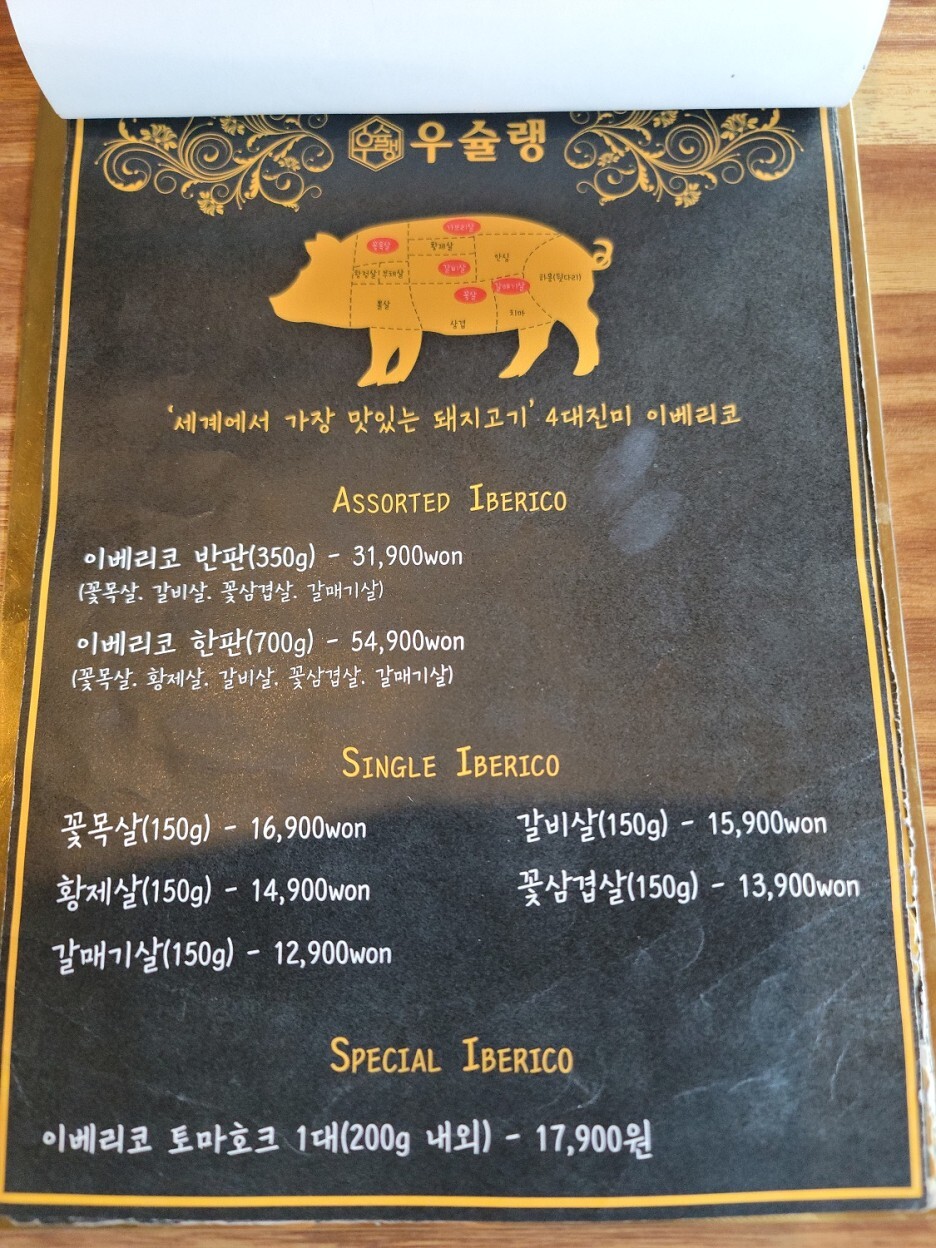 우슐랭 우슐랭
가브리살
꽃목살 황제살
갈비살 안심
항정살 부채살 하몽(뒷다리)
꽃살 갈매기살
뽈살
삼겹 치마
'세계에서 가장 맛있는 돼지고기' 4대진미 이베리코
ASSORTED IBERICO
이베리코 반판(350g) - 31,900won
(꽃목살. 갈비살. 꽃삼겹살. 갈매기살)
이베리코 한판(700g) - 54,900won
(꽃목살. 황제살. 갈비살. 꽃삼겹살. 갈매기살)
SINGLE IBERICO
꽃목살(150g) - 16,900won
갈비살(150g) - 15,900won
황제살(150g) - 14,900won
꽃삼겹살(150g) - 13,900won
갈매기살(150g) - 12,900won
SPECIAL IBERICO
이베리코 토마호크 1대(200g 내외) - 17,900원